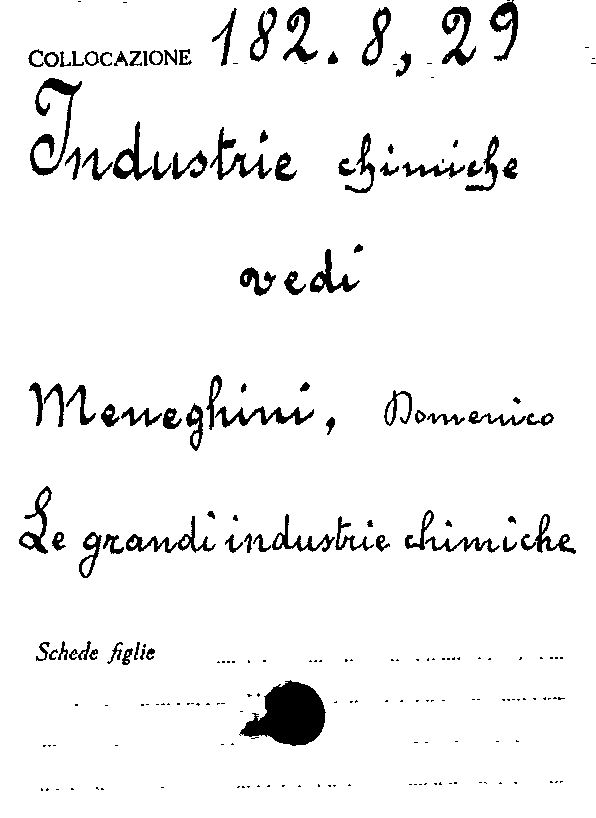 COLLOCAZIONE 182.8,29
Industrie chimiche
vedi
Meneghini, Domenico
Le grandi industrie chimiche
Schede figlie